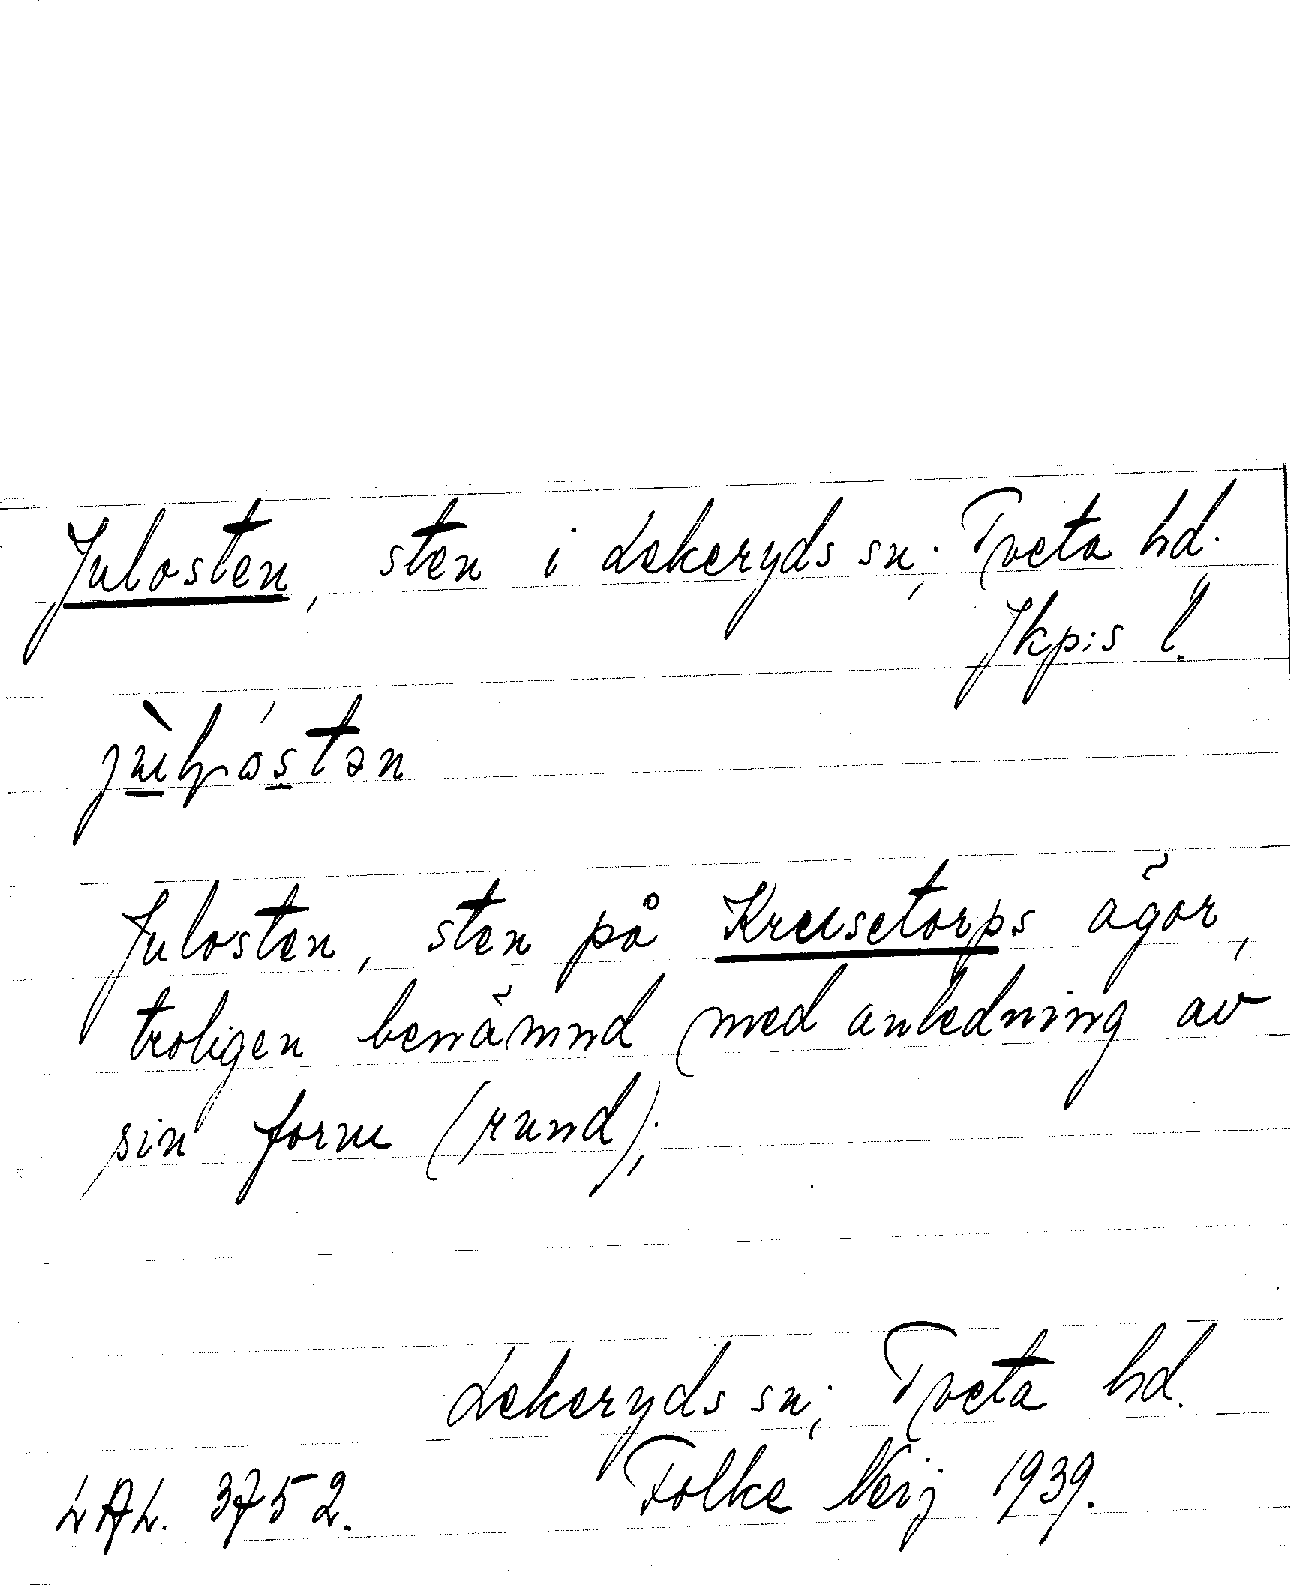 Julosten, sten i Lekeryds sn; Tveta hd.
Jkp:s l.
Julosten, sten på Kreusetorps ägor,
troligen benämnd med anledning av
sin form (rund);
Lekeryds sn; Tveta hd.
LAL. 3752. Folke Neij 1939.